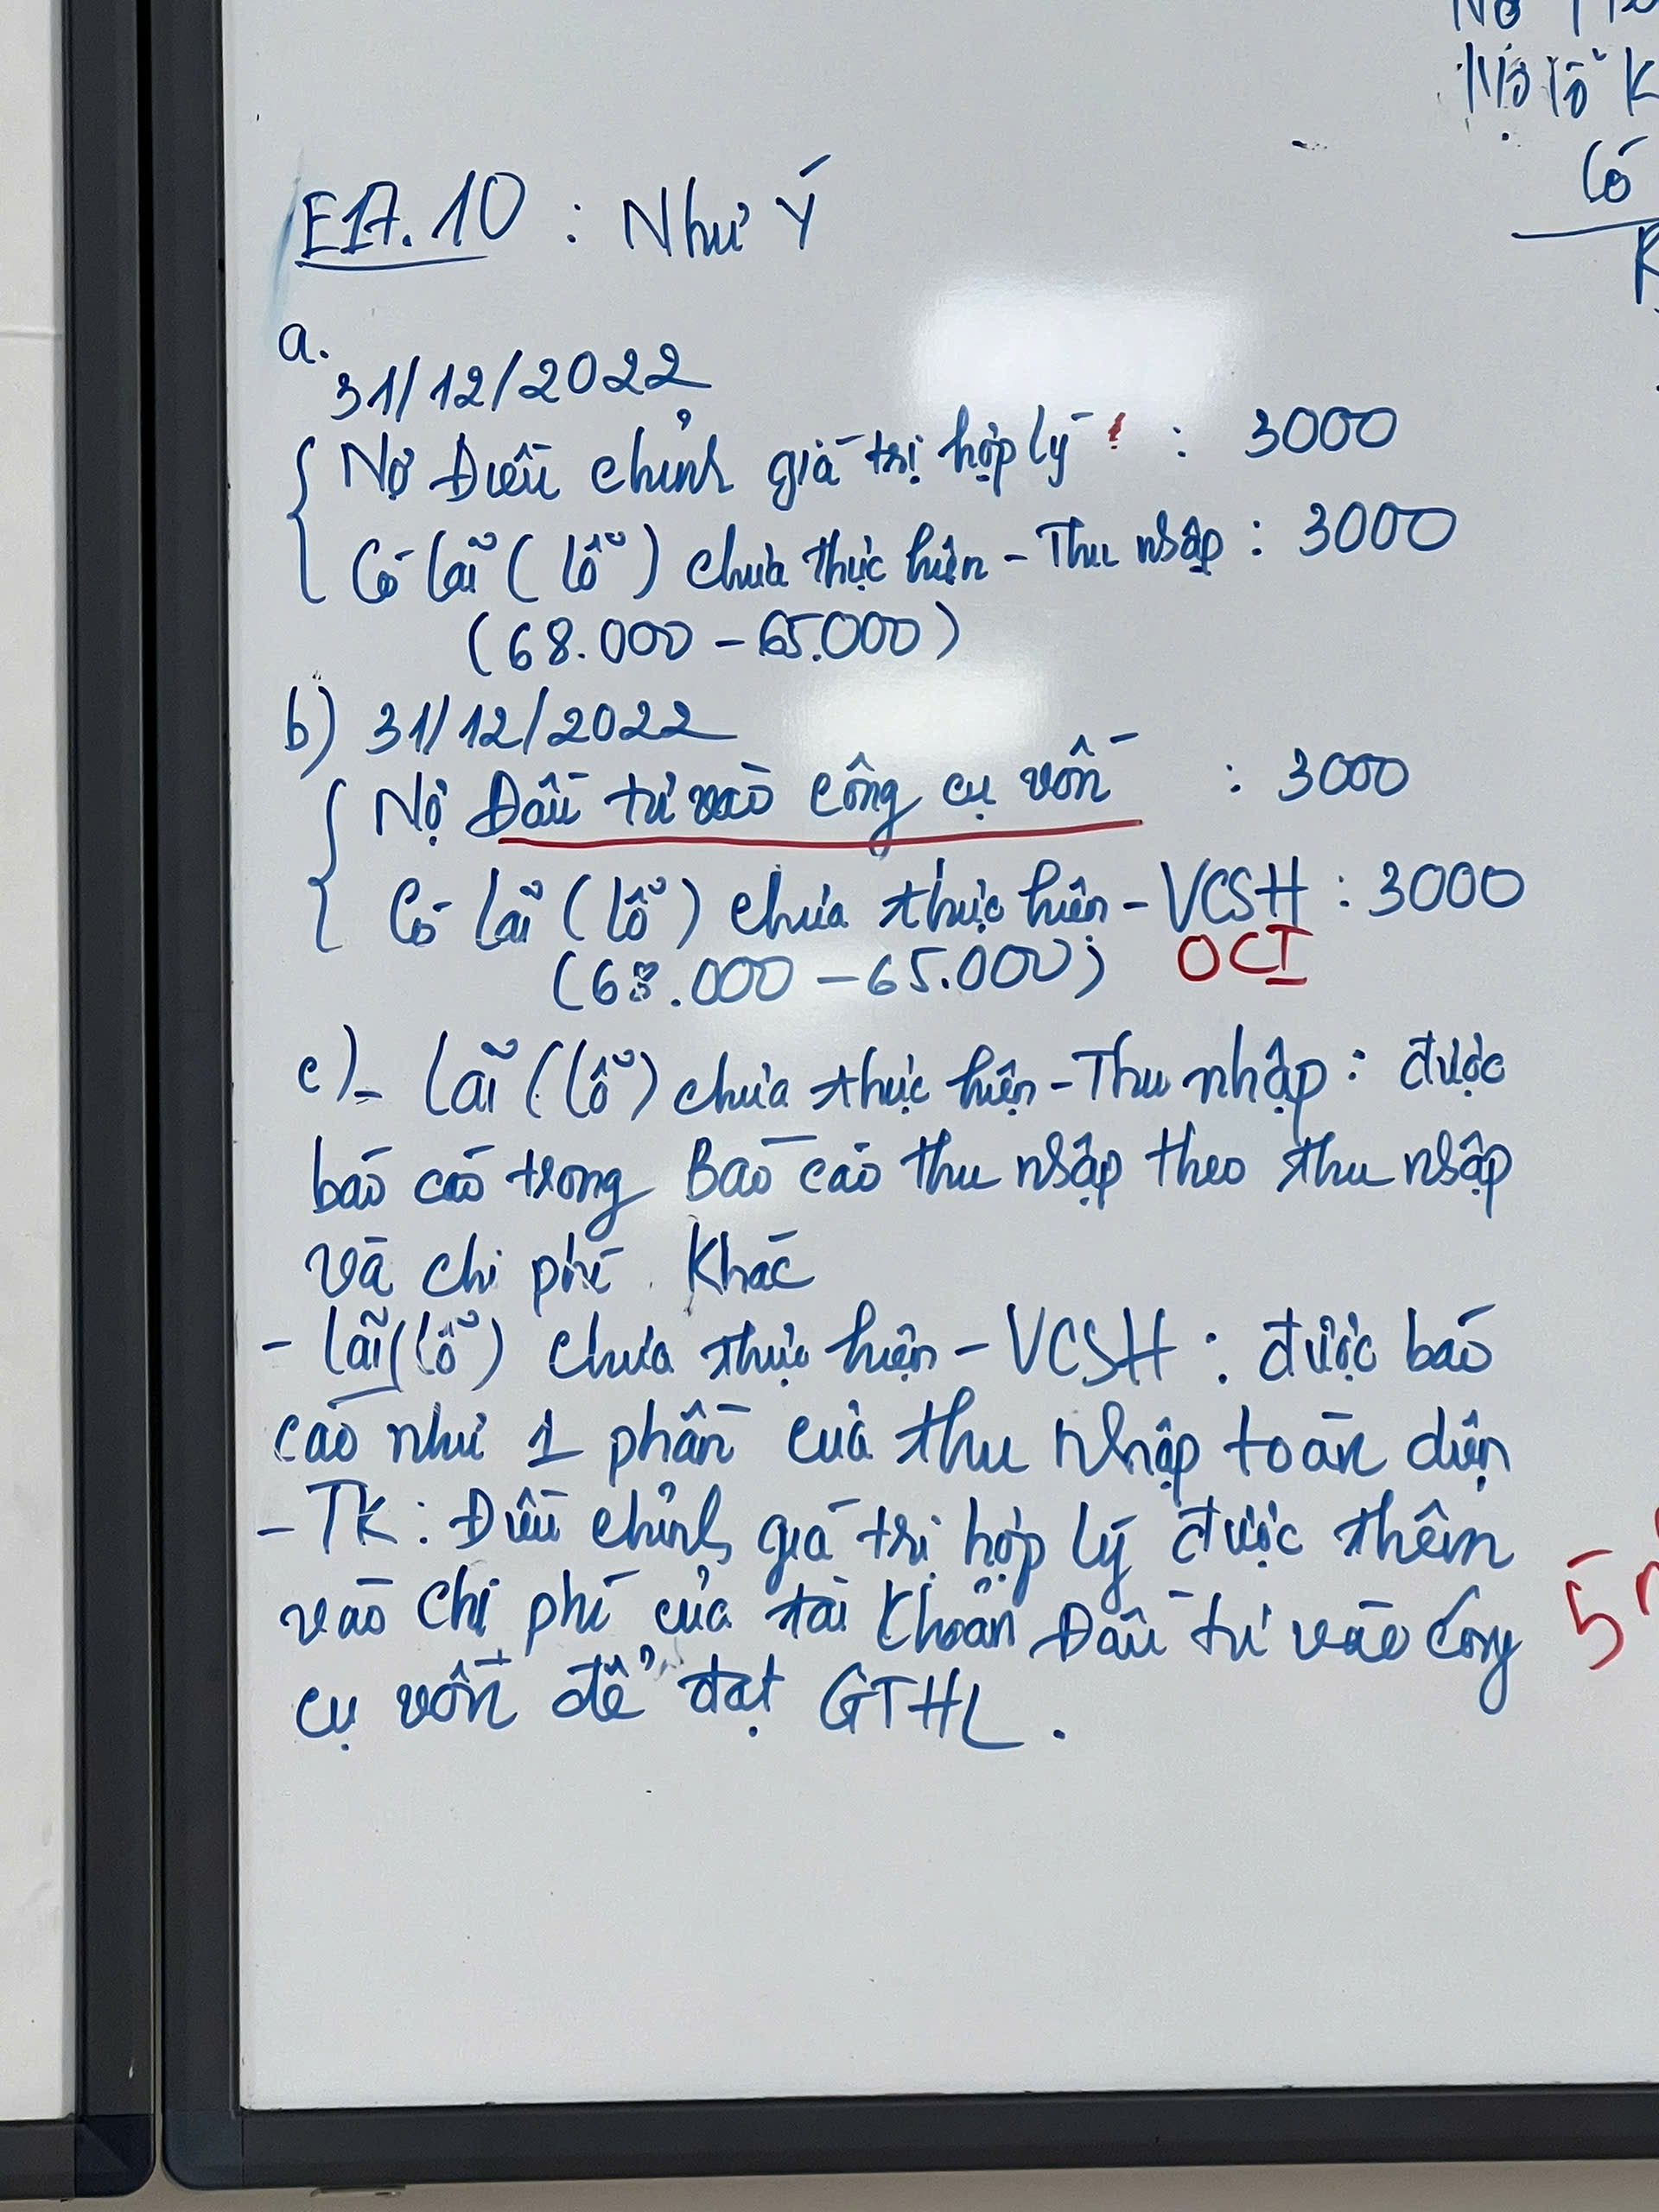 E17.10 : Như Ý
a.
31/12/2022
Nợ Điều chỉnh giá trị hợp lý : 3000
Có lãi (lỗ) chưa thực hiện - Thu nhập : 3000
(68.000 - 65.000)
b) 31/12/2022
Nợ Đầu tư vào công cụ vốn : 3000
Có lãi (lỗ) chưa thực hiện - VCSH : 3000
(68.000 - 65.000) OCI
c) - Lãi (lỗ) chưa thực hiện - Thu nhập : được
báo cáo trong Báo cáo thu nhập theo thu nhập
và chi phí khác
- Lãi (lỗ) chưa thực hiện - VCSH : được báo
cáo như 1 phần của thu nhập toàn diện
- TK : Điều chỉnh giá trị hợp lý được thêm
vào chi phí của tài khoản Đầu tư vào công
cụ vốn để đạt GTHL.
Nợ lỗ
Có
5